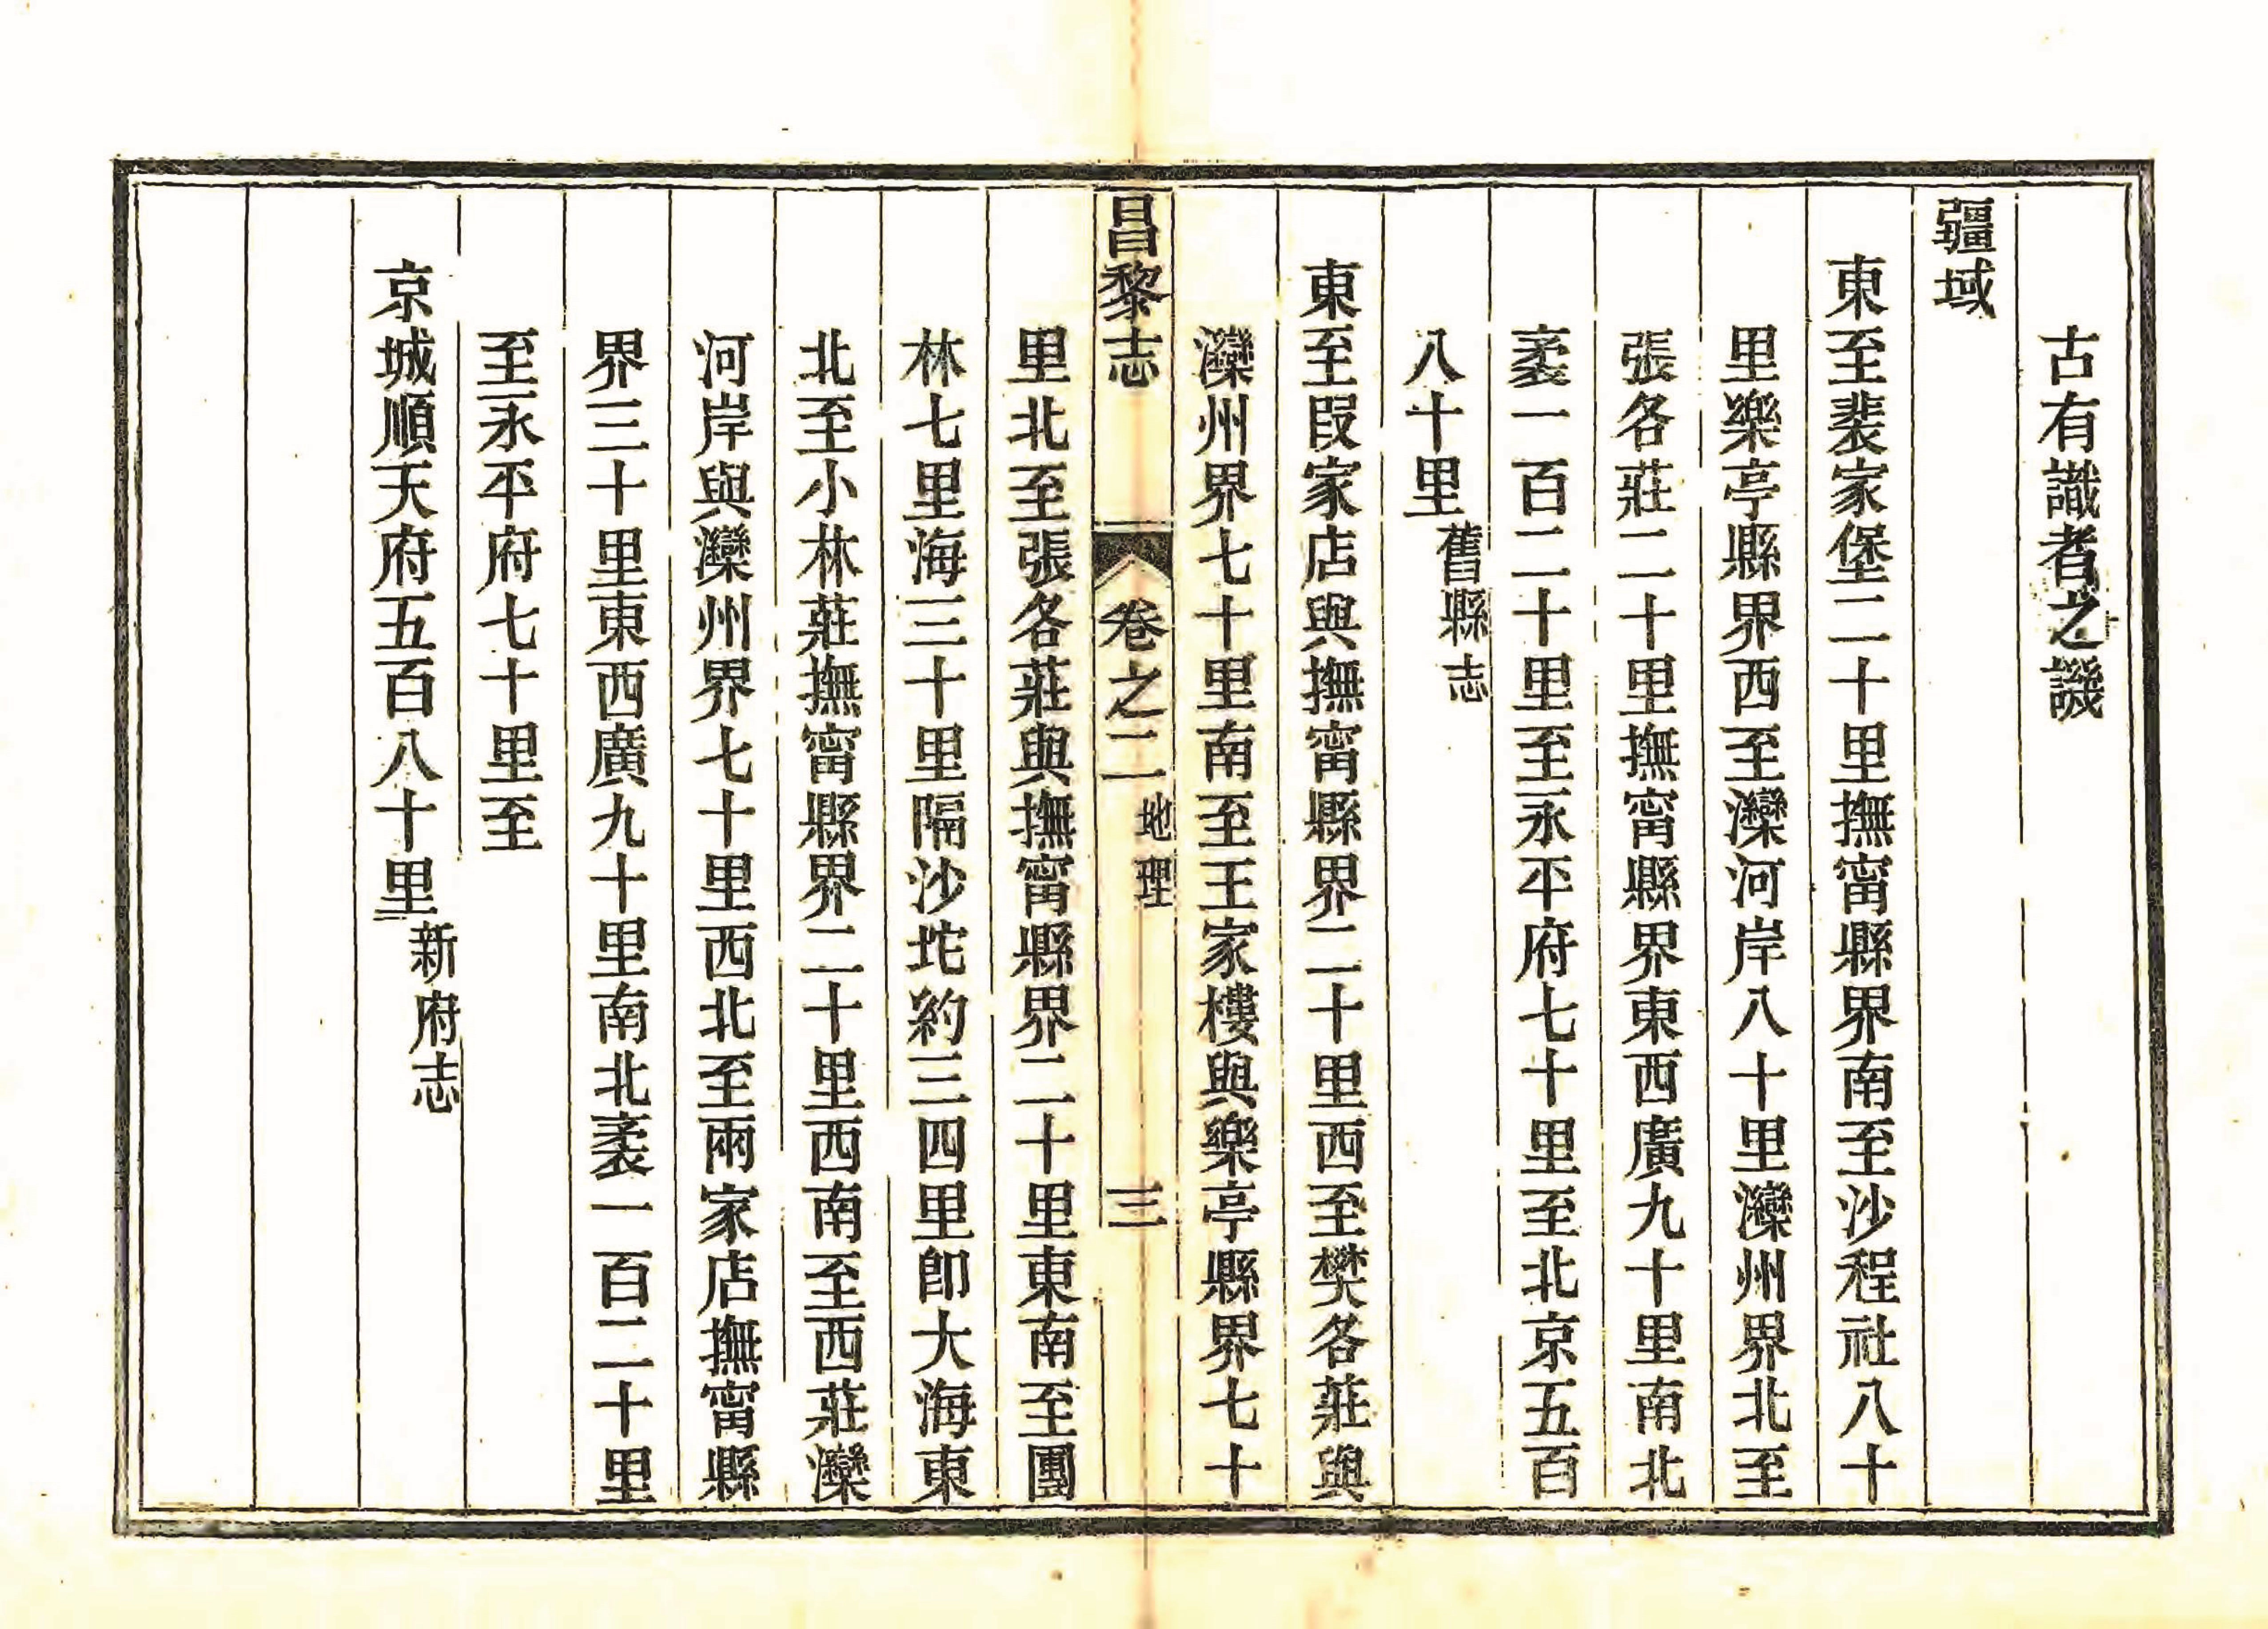 古有識者之譏
疆域
東至裴家堡二十里撫甯縣界南至沙程社八十
里樂亭縣界西至灤河岸八十里灤州界北至
張各莊二十里撫甯縣界東西廣九十里南北
袤一百二十里至永平府七十里至北京五百
八十里舊縣志
東至段家店與撫甯縣界二十里西至樊各莊與
灤州界七十里南至王家樓與樂亭縣界七十
昌黎志 卷之二 地理 三
里北至張各莊與撫甯縣界二十里東南至團
林七里海三十里隔沙坨約三四里卽大海東
北至小林莊撫甯縣界二十里西南至西莊灤
河岸與灤州界七十里西北至兩家店撫甯縣
界三十里東西廣九十里南北袤一百二十里
至永平府七十里至
京城順天府五百八十里新府志